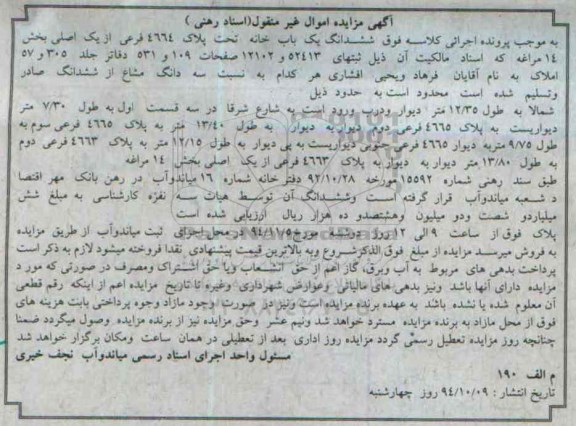 آگهی مزایده اموال غیر منقول(اسناد رهنی )
به موجب پرونده اجرائی کلاسه فوق ششدانگ یک باب خانه تحت پلاک ۴۶۶۴ فرعی از یک اصلی بخش
۱۴ مراغه که اسناد مالکیت آن ذیل ثبتهای ۵۲۴۱۳ و ۱۲۱۰۲ صفحات ۱۰۹ و ۵۳۱ دفاتر جلد ۳۰۵ و ۵۷
املاک به نام آقایان فرهاد ویحیی افشاری هر کدام به نسبت سه دانگ مشاع از ششدانگ صادر
وتسلیم شده است محدود است به حدود ذیل
شمالا به طول ۱۲/۳۵ متر دیوار ودرب ورود است به شارع شرقا در سه قسمت اول به طول ۷/۳۰ متر
دیواریست به پلاک ۴۶۶۵ فرعی دوم دیوار به دیوار به طول ۱۳/۴۰ متر به پلاک ۴۶۶۵ فرعی سوم به
طول ۹/۷۵ متر به دیوار ۴۶۶۵ فرعی جنوبی دیواریست به پی دیوار به طول ۱۲/۱۵ متر به پلاک ۴۶۶۳ فرعی دوم
به طول ۱۳/۸۰ متر دیوار به دیوار به پلاک ۴۶۶۳ فرعی از یک اصلی بخش ۱۴ مراغه
طبق سند رهنی شماره ۱۵۵۹۲ مورخه ۹۲/۱۰/۲۸ دفتر خانه شماره ۱۶ میاندوآب در رهن بانک مهر اقتصا
د شعبه میاندوآب قرار گرفته است وششدانگ آن توسط هیات سه نفره کارشناسی به مبلغ شش
میلیاردو شصت ودو میلیون وهشتصدو ده هزار ریال ارزیابی شده است
پلاک فوق از ساعت ۹ الی ۱۲ روز دوشنبه مورخ ۹۴/۱۱/۵ در محل اجرای ثبت میاندوآب از طریق مزایده
به فروش میرسد مزایده از مبلغ فوق الذکر شروع وبه بالاترین قیمت پیشنهادی نقدا فروخته میشود لازم به ذکر است
پرداخت بدهی های مربوط به آب وبرق، گاز اعم از حق انشعاب ویا حق اشتراک ومصرف در صورتی که مور د
مزایده دارای آنها باشد ونیز بدهی های مالیاتی وعوارض شهرداری وغیره تا تاریخ مزایده اعم از اینکه رقم قطعی
آن معلوم شده یا نشده باشد به عهده برنده مزایده است ونیز در صورت وجود مازاد وجوه پرداختی بابت هزینه های
فوق از محل مازاد به برنده مزایده مسترد خواهد شد ونیم عشر وحق مزایده نیز از برنده مزایده وصول میگردد ضمنا
چنانچه روز مزایده تعطیل رسمی گردد مزایده روز اداری بعد از تعطیلی در همان ساعت ومکان برگزار خواهد شد
مسئول واحد اجرای اسناد رسمی میاندوآب نجف خیری
م الف ۱۹۰
تاریخ انتشار : ۹۴/۱۰/۰۹ روز چهارشنبه